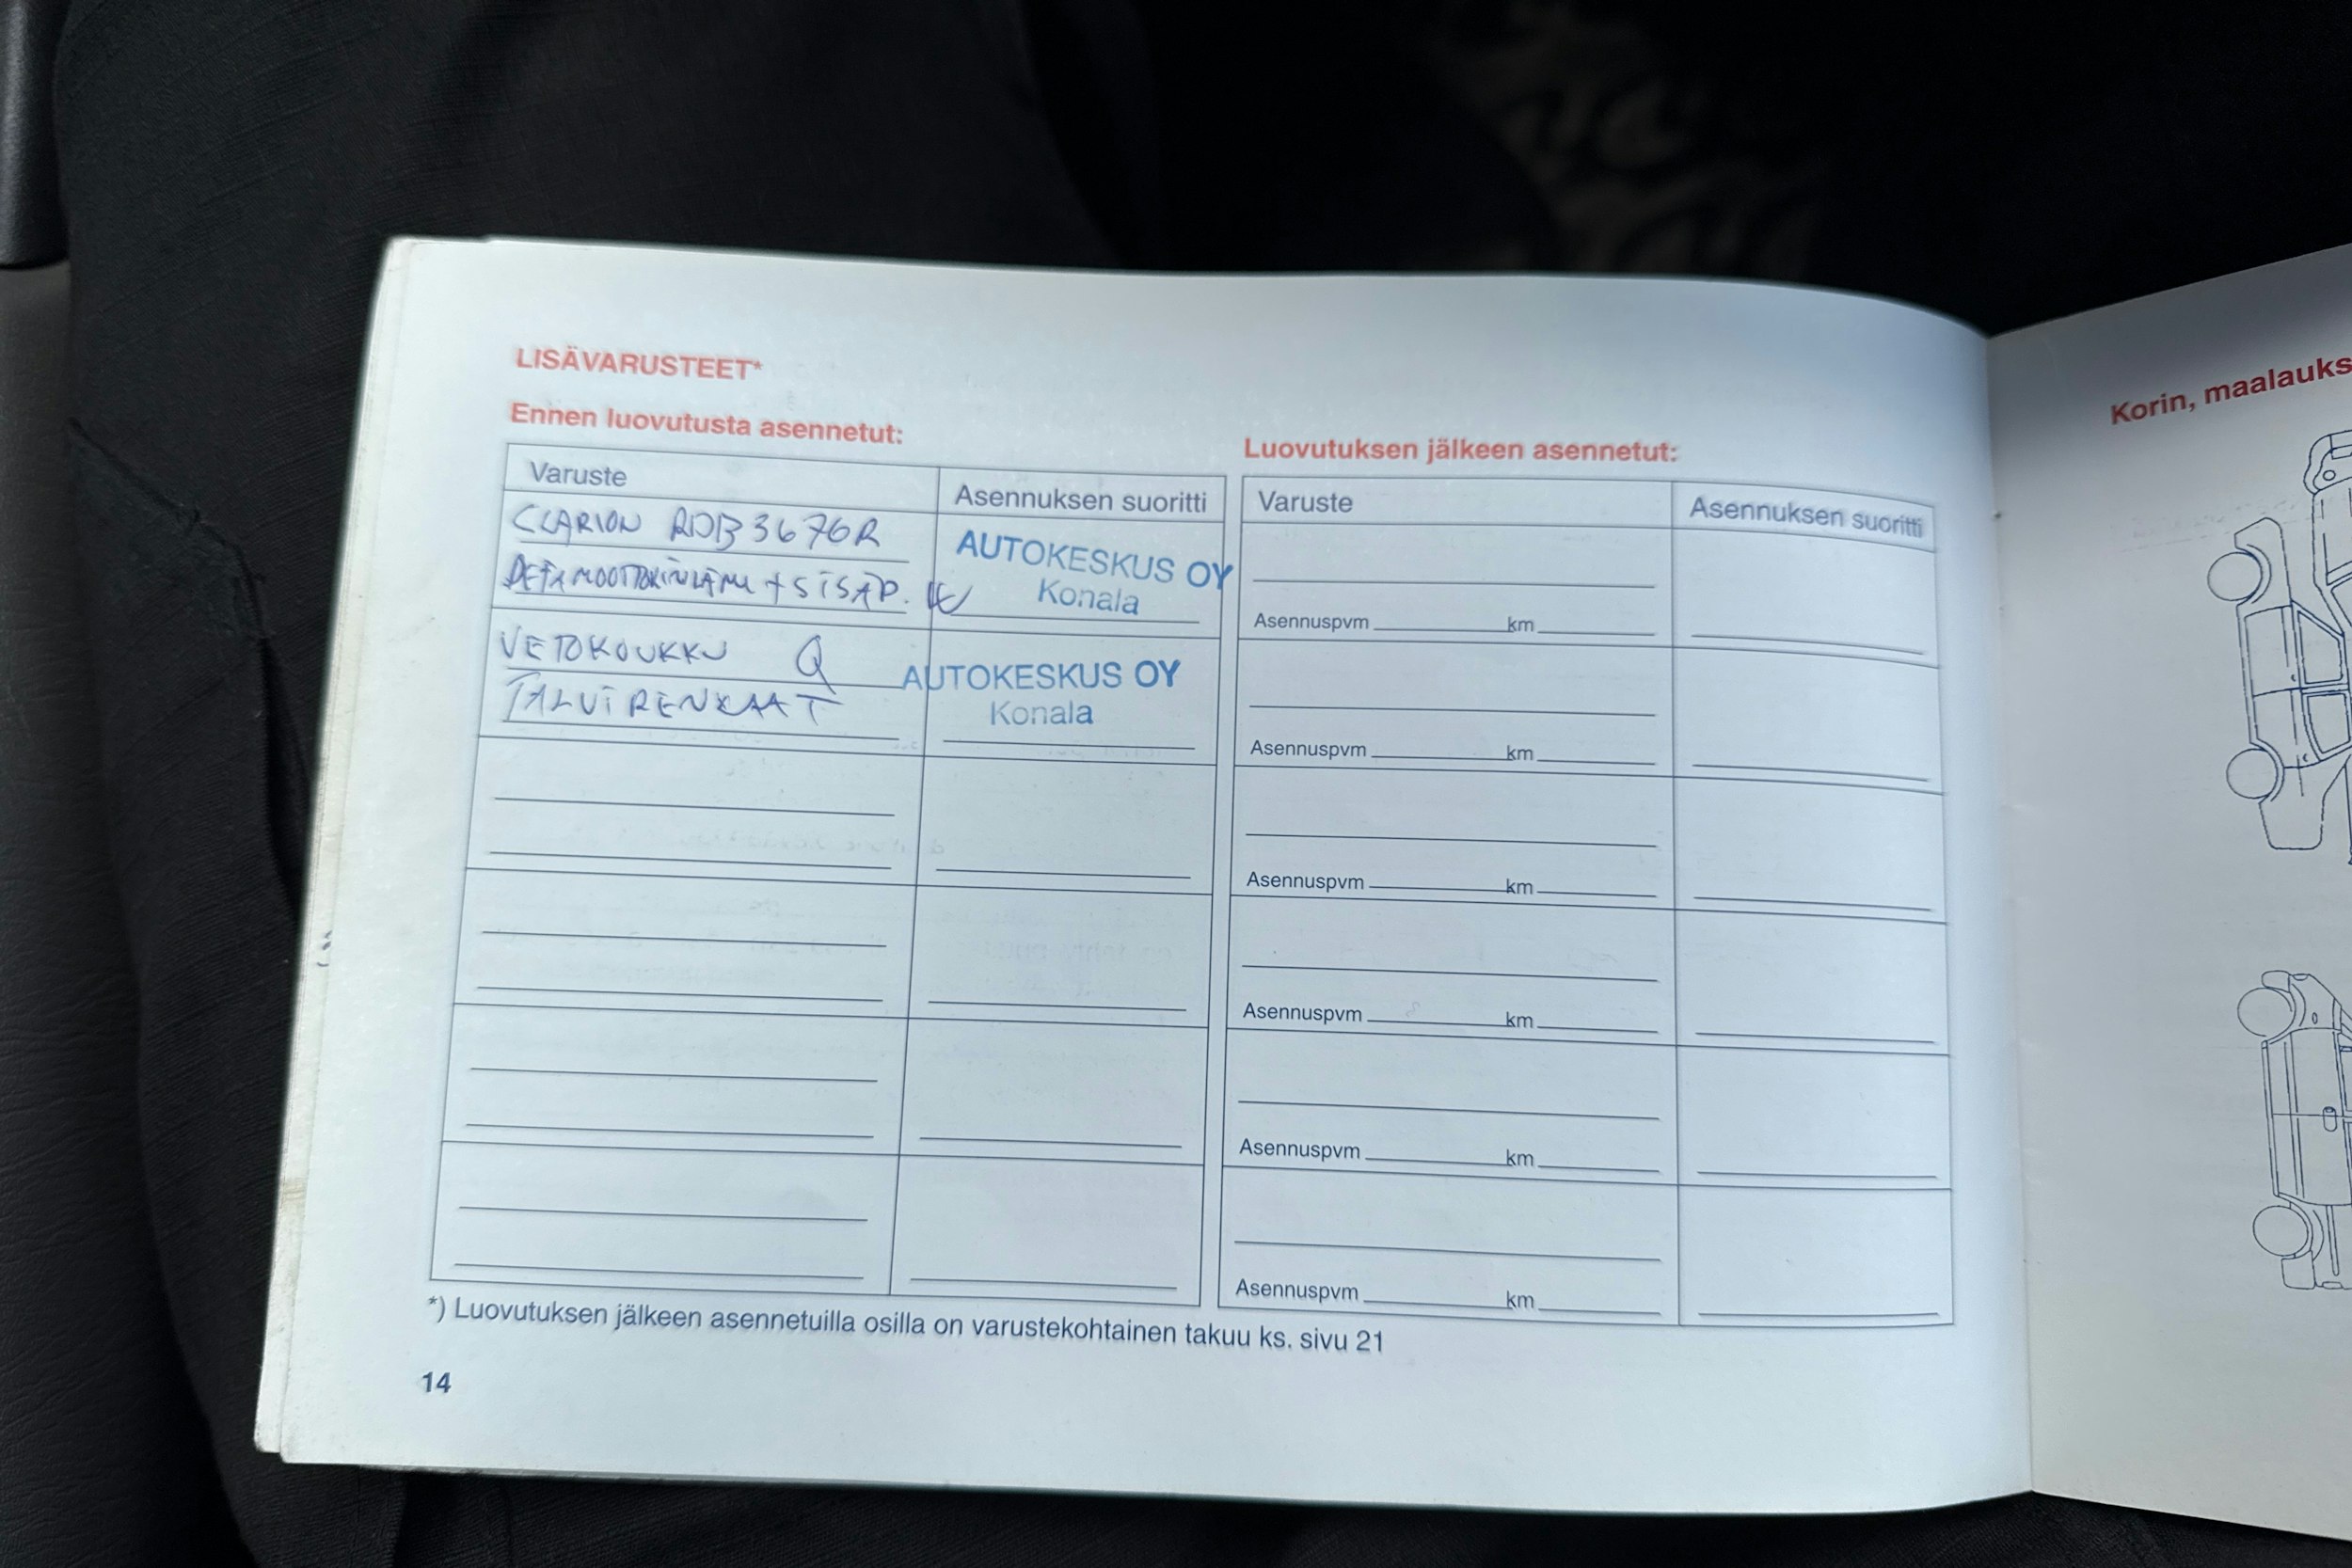 LISÄVARUSTEET*
Ennen luovutusta asennetut:
Varuste
Asennuksen suoritti
CLARION RDB 3676R
DEFA MOOTTORINLÄMM + SISÄP.
AUTOKESKUS OY
Konala
VETOKOUKKU
TALVIRENKAAT
AUTOKESKUS OY
Konala
Luovutuksen jälkeen asennetut:
Varuste
Asennuksen suoritti
Asennuspvm km
Asennuspvm km
Asennuspvm km
Asennuspvm km
Asennuspvm km
Asennuspvm km
*) Luovutuksen jälkeen asennetuilla osilla on varustekohtainen takuu ks. sivu 21
14
Korin, maalauks